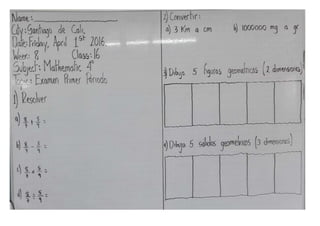 Name:
City: Santiago de Cali,
Date: Friday, April 1st 2016
Week: 8 Class: 16
Subject: Mathematic 4°
Topic: Examen Primer Período
1) Resolver
a)
b)
c)
d)
2) Convertir:
a) 3 Km a cm b) 1000000 mg a gr
3) Dibuja 5 figuras geometricas (2 dimensiones)
4) Dibuja 5 solidos geometricos (3 dimensiones)